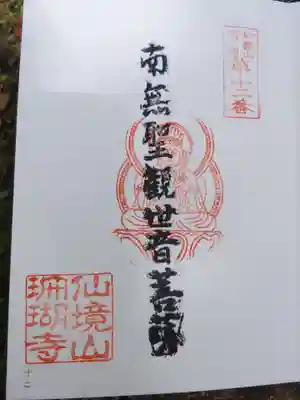 第十二番
南無聖観世音菩薩
仙境山
珊瑚寺
十二